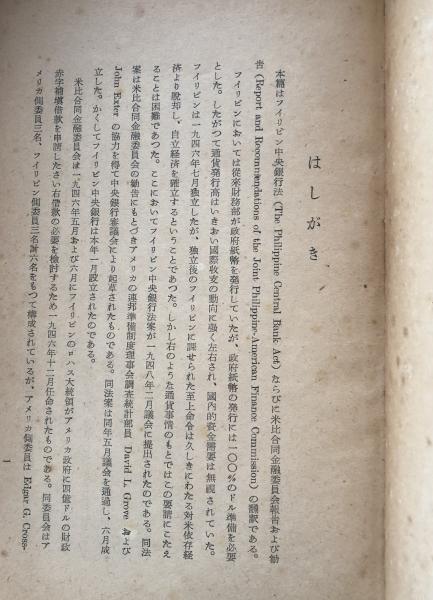 はしがき
本篇はフイリピン中央銀行法 (The Philippine Central Bank Act) ならびに米比合同金融委員会報告および勧
告 (Report and Recommendations of the Joint Philippine-American Finance Commission) の飜訳である。
フイリピンにおいては従來財務部が政府紙幣を発行していたが、政府紙幣の発行には一〇〇%のドル準備を必要
とした。したがつて通貨発行高はいきおい國際收支の動向に強く左右され、國內的資金需要は無視されていた。
フイリピンは一九四六年七月独立したが、独立後のフイリピンに課せられた至上命令は久しきにわたる対米依存経
済より脱却し、自立経済を確立するということであつた。しかし右のような通貨事情のもとではこの要請にこたえ
ることは困難であつた。ここにおいてフイリピン中央銀行法案が一九四八年二月議会に提出されたのである。同法
案は米比合同金融委員会の勧告にもとづきアメリカの連邦準備制度理事会調査統計部員 David L. Grove および
John Exter の協力を得て中央銀行審議会により起草されたものである。同法案は同年五月議会を通過し、六月成
立した。かくしてフイリピン中央銀行は本年一月設立されたのである。
米比合同金融委員会は一九四六年五月および六月にフイリピンのロハス大統領がアメリカ政府に四億ドルの財政
赤字補塡借款を申請したさい右借款の必要を検討するため一九四六年十二月任命されたものである。同委員会はア
メリカ側委員三名、フイリピン側委員三名計六名をもつて構成されているが、アメリカ側委員は Edgar G. Cross-
1